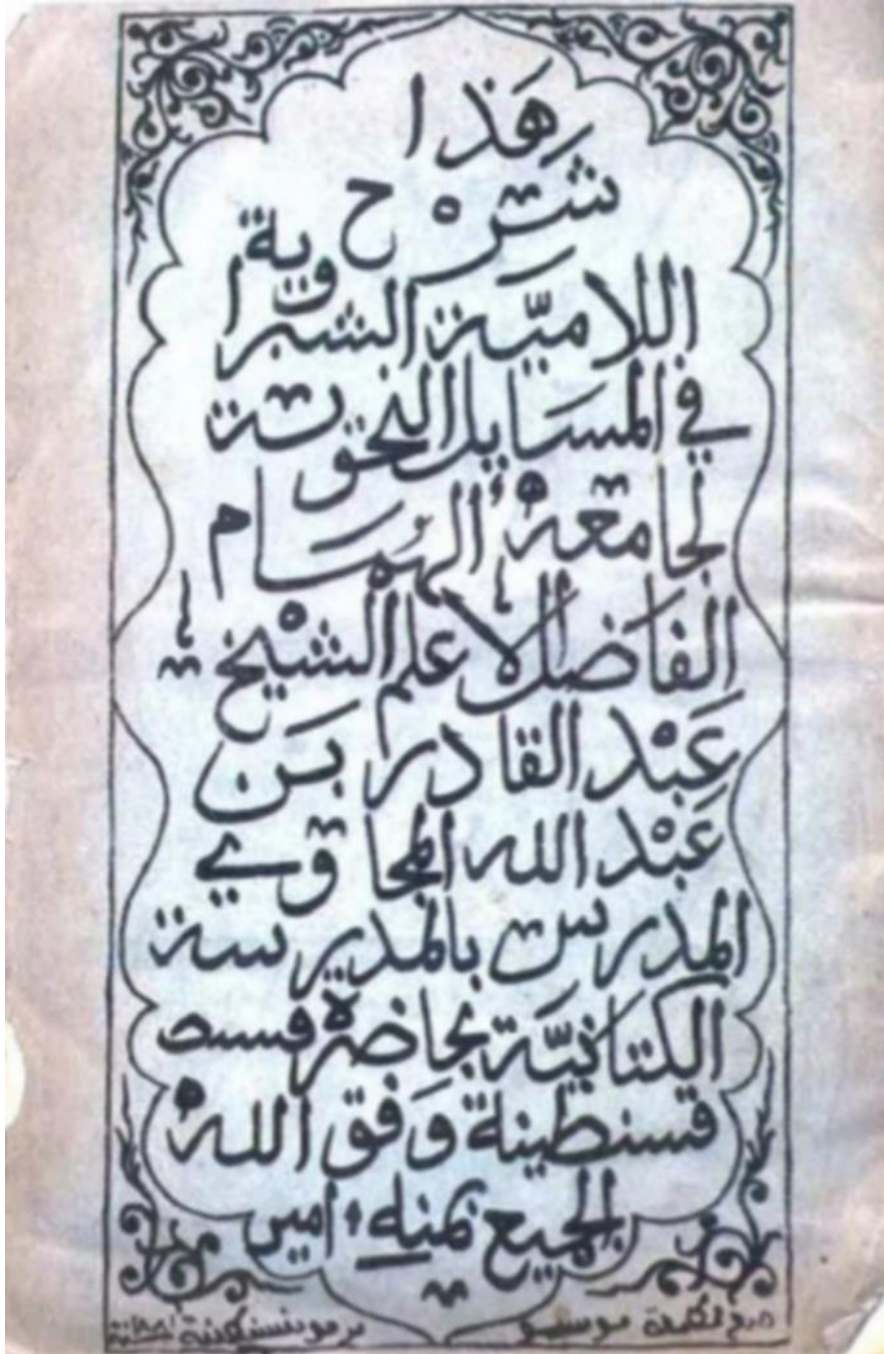 هَذا
شَرْح
اللاميَّة الشبراوية
في المسَايل النحوية
لجامعهْ الهُمَام
الفاضل الاعلم الشيخ
عَبْد القادر بَن
عَبْد الله المجاوي
المدرس بالمدرسة
الكتانيَّة بحاضرة قسنط
قسنطينة وَفق اللهْ
الجميع بمنه ءامين